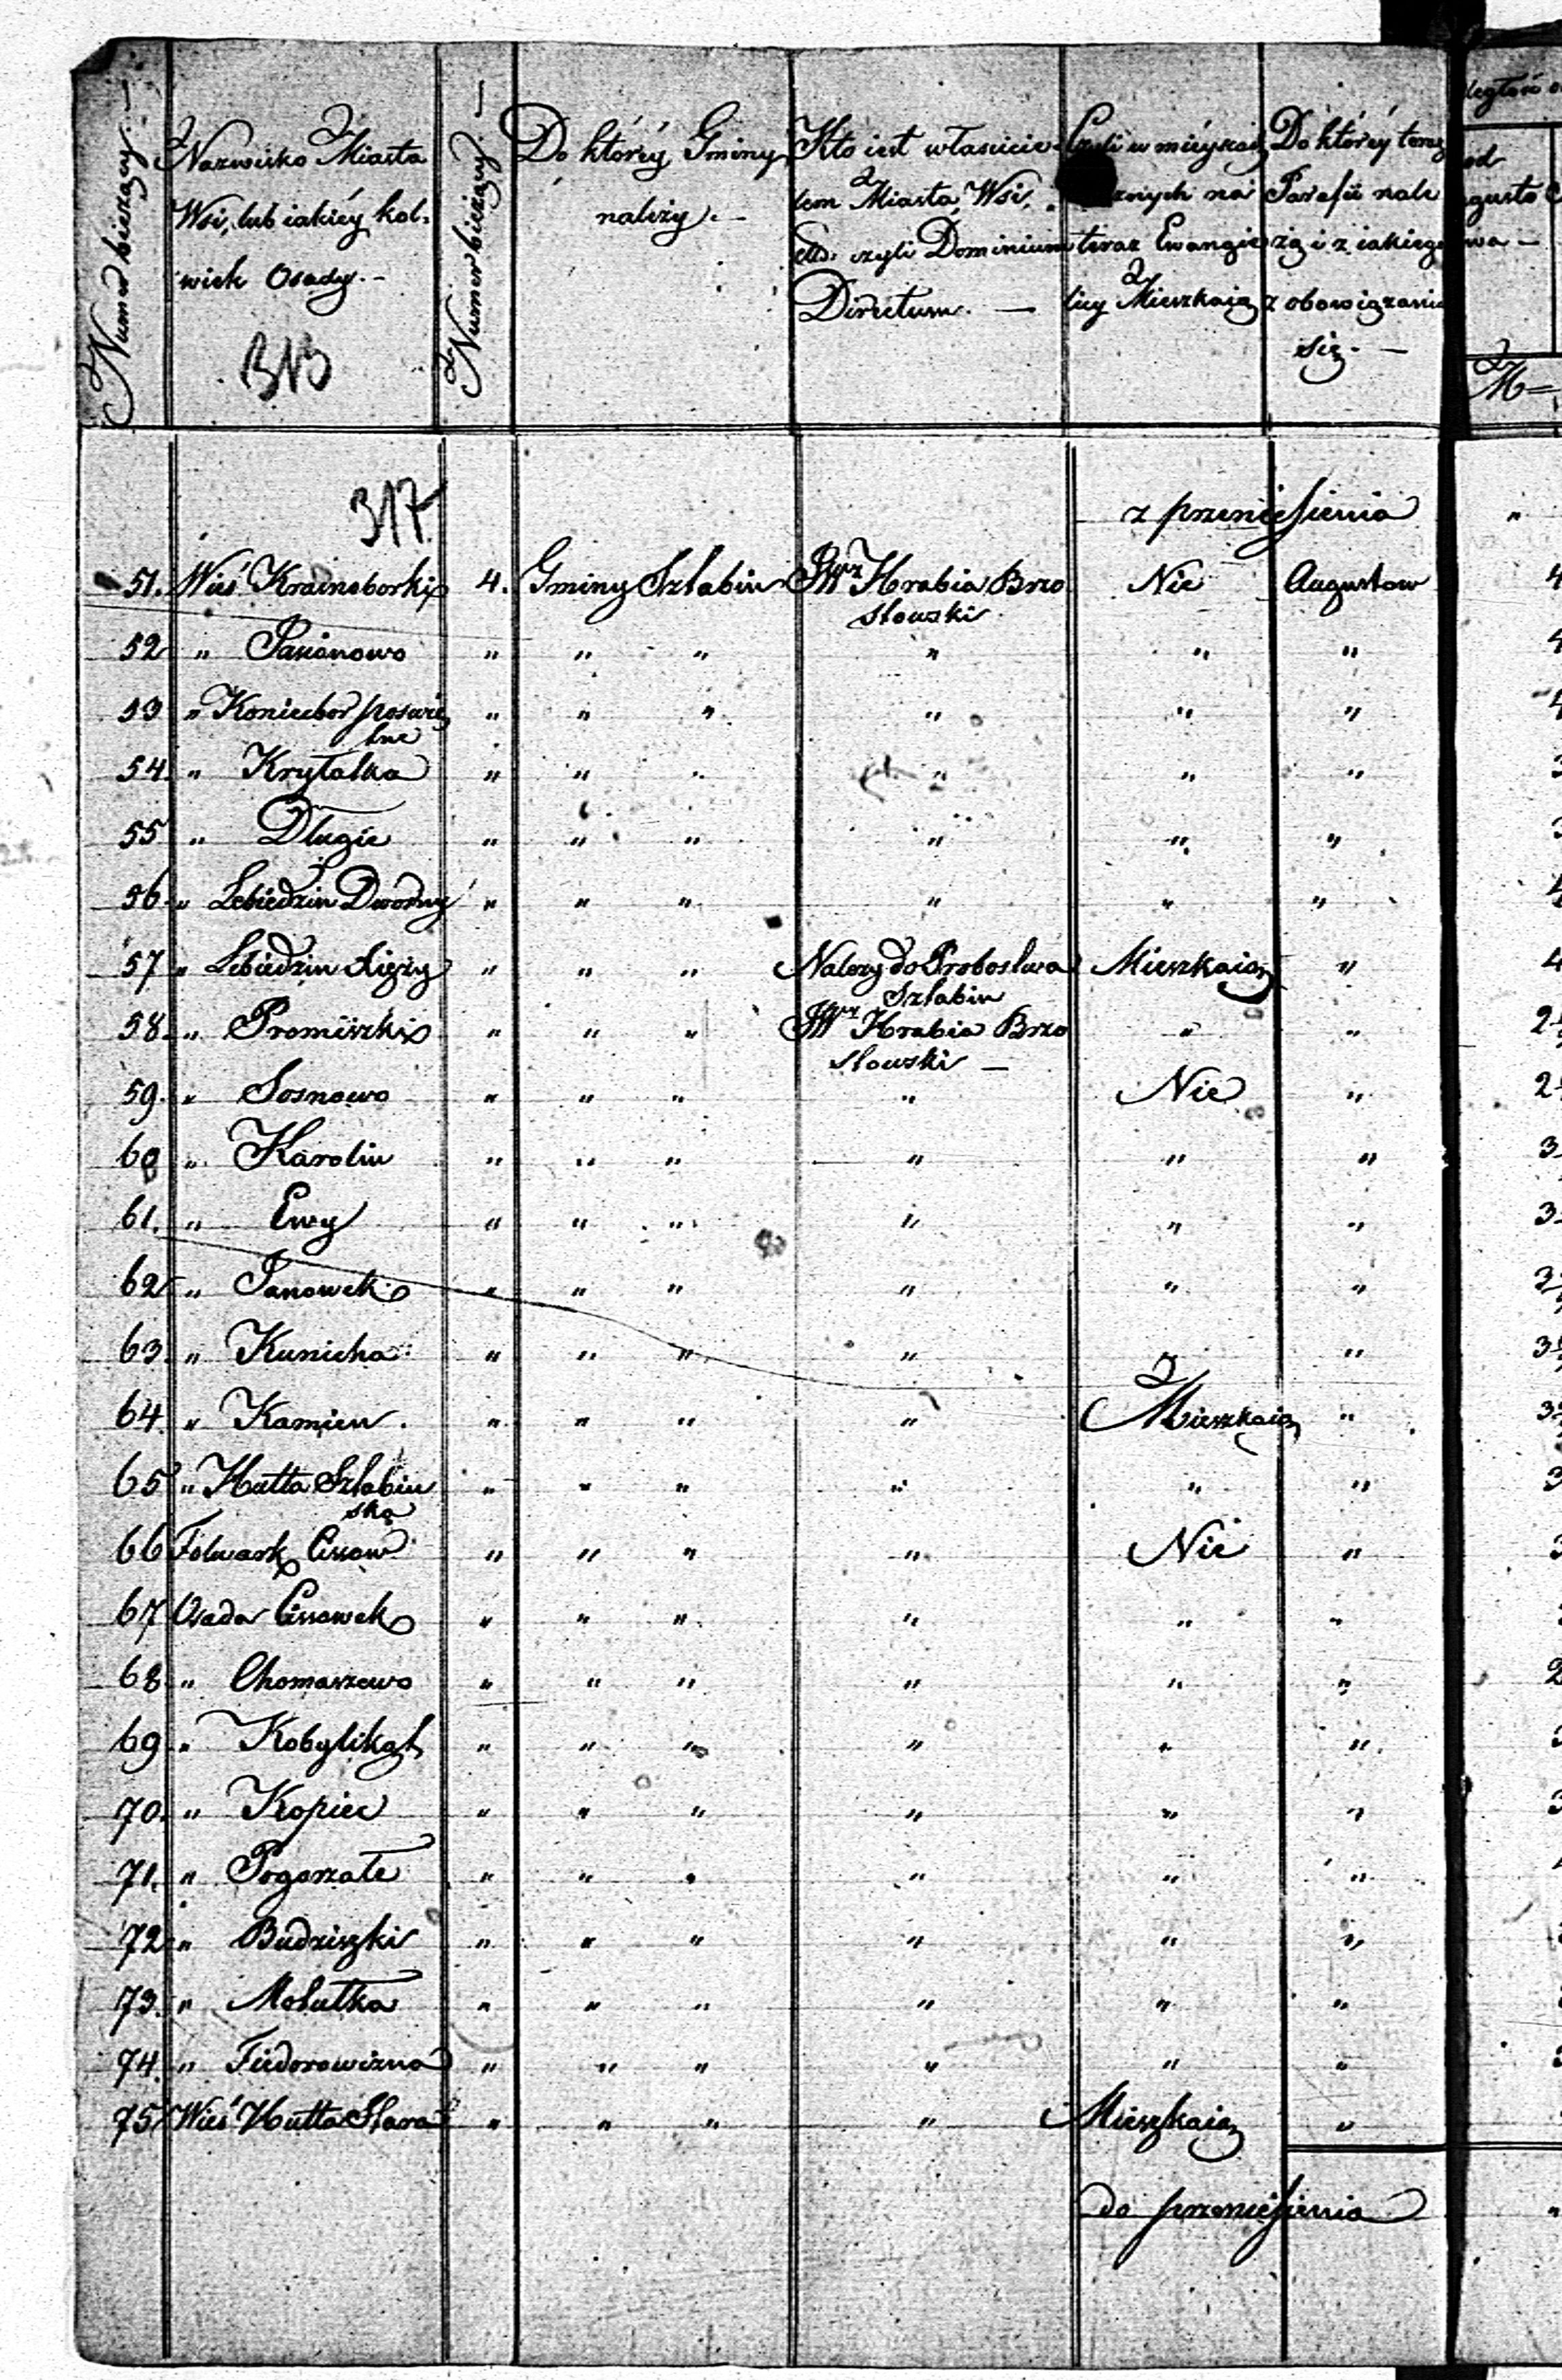 Numer bieżący. —
Nazwisko Miasta
Wsi, lub iakiéy kol-
wiek Osady. -
313
Numer bieżący. —
Do któréy Gminy
należy. -
Kto iest właścicie-
lem Miasta, Wsi,
etd. czyli Dominium
Directum. —
Czyli w mieyscach
znych na
teraz Ewangie
licy Mieszkaią
Do któréy teraz
Parafii nale
żą i z iakiego
zobowiązania
się. —
ległość o
od
gusto
wa —
M =
317.
z przeniesienia "
51. Wieś Krasnoborki 4. Gminy Sztabin JW Hrabia Brzo Nie Augustow 4
stowski
52 " Jasionowo " " " " " " 4
53 " Koniecbor poswię " " " " " " 4
tne
54. " Kryłatka " " " " " " 3
55 " Długie " " " " " " 3
56. " Lebiedzin Dworny " " " " " " 4
57 " Lebiedzin Xięży " " " Nalezy do Probostwa Mieszkaią " 4
Sztabin
58. " Promiszki " " " JW Hrabia Brzo " " 2
stowski —
59. " Sosnowo " " " " Nie " 2
60 " Karolin " " " " " " 3
61. " Ewy " " " " " " 3
62 " Janowek " " " " " " 3
63. " Kunicha " " " " " 3
64. " Kamien. " " " " Mieszkaią " 3
65 " Hutta Sztabin " " " " " " 3
ska
66 Folwark Cissow " " " " Nie " 3
67 Osada Cissowek " " " " " "
68 " Chomaszewo " " " " " " 2
69 " Kobylikąt " " " " " "
70. " Kopiec " " " " " " 3
71. " Pogorzałe " " " " " "
72 " Budziszki " " " " " "
73. " Mołutka " " " " " "
74. " Fiedorowizna " " " " " "
75 Wieś Hutta Stara " " " " Mieszkaią "
do przeniesienia "